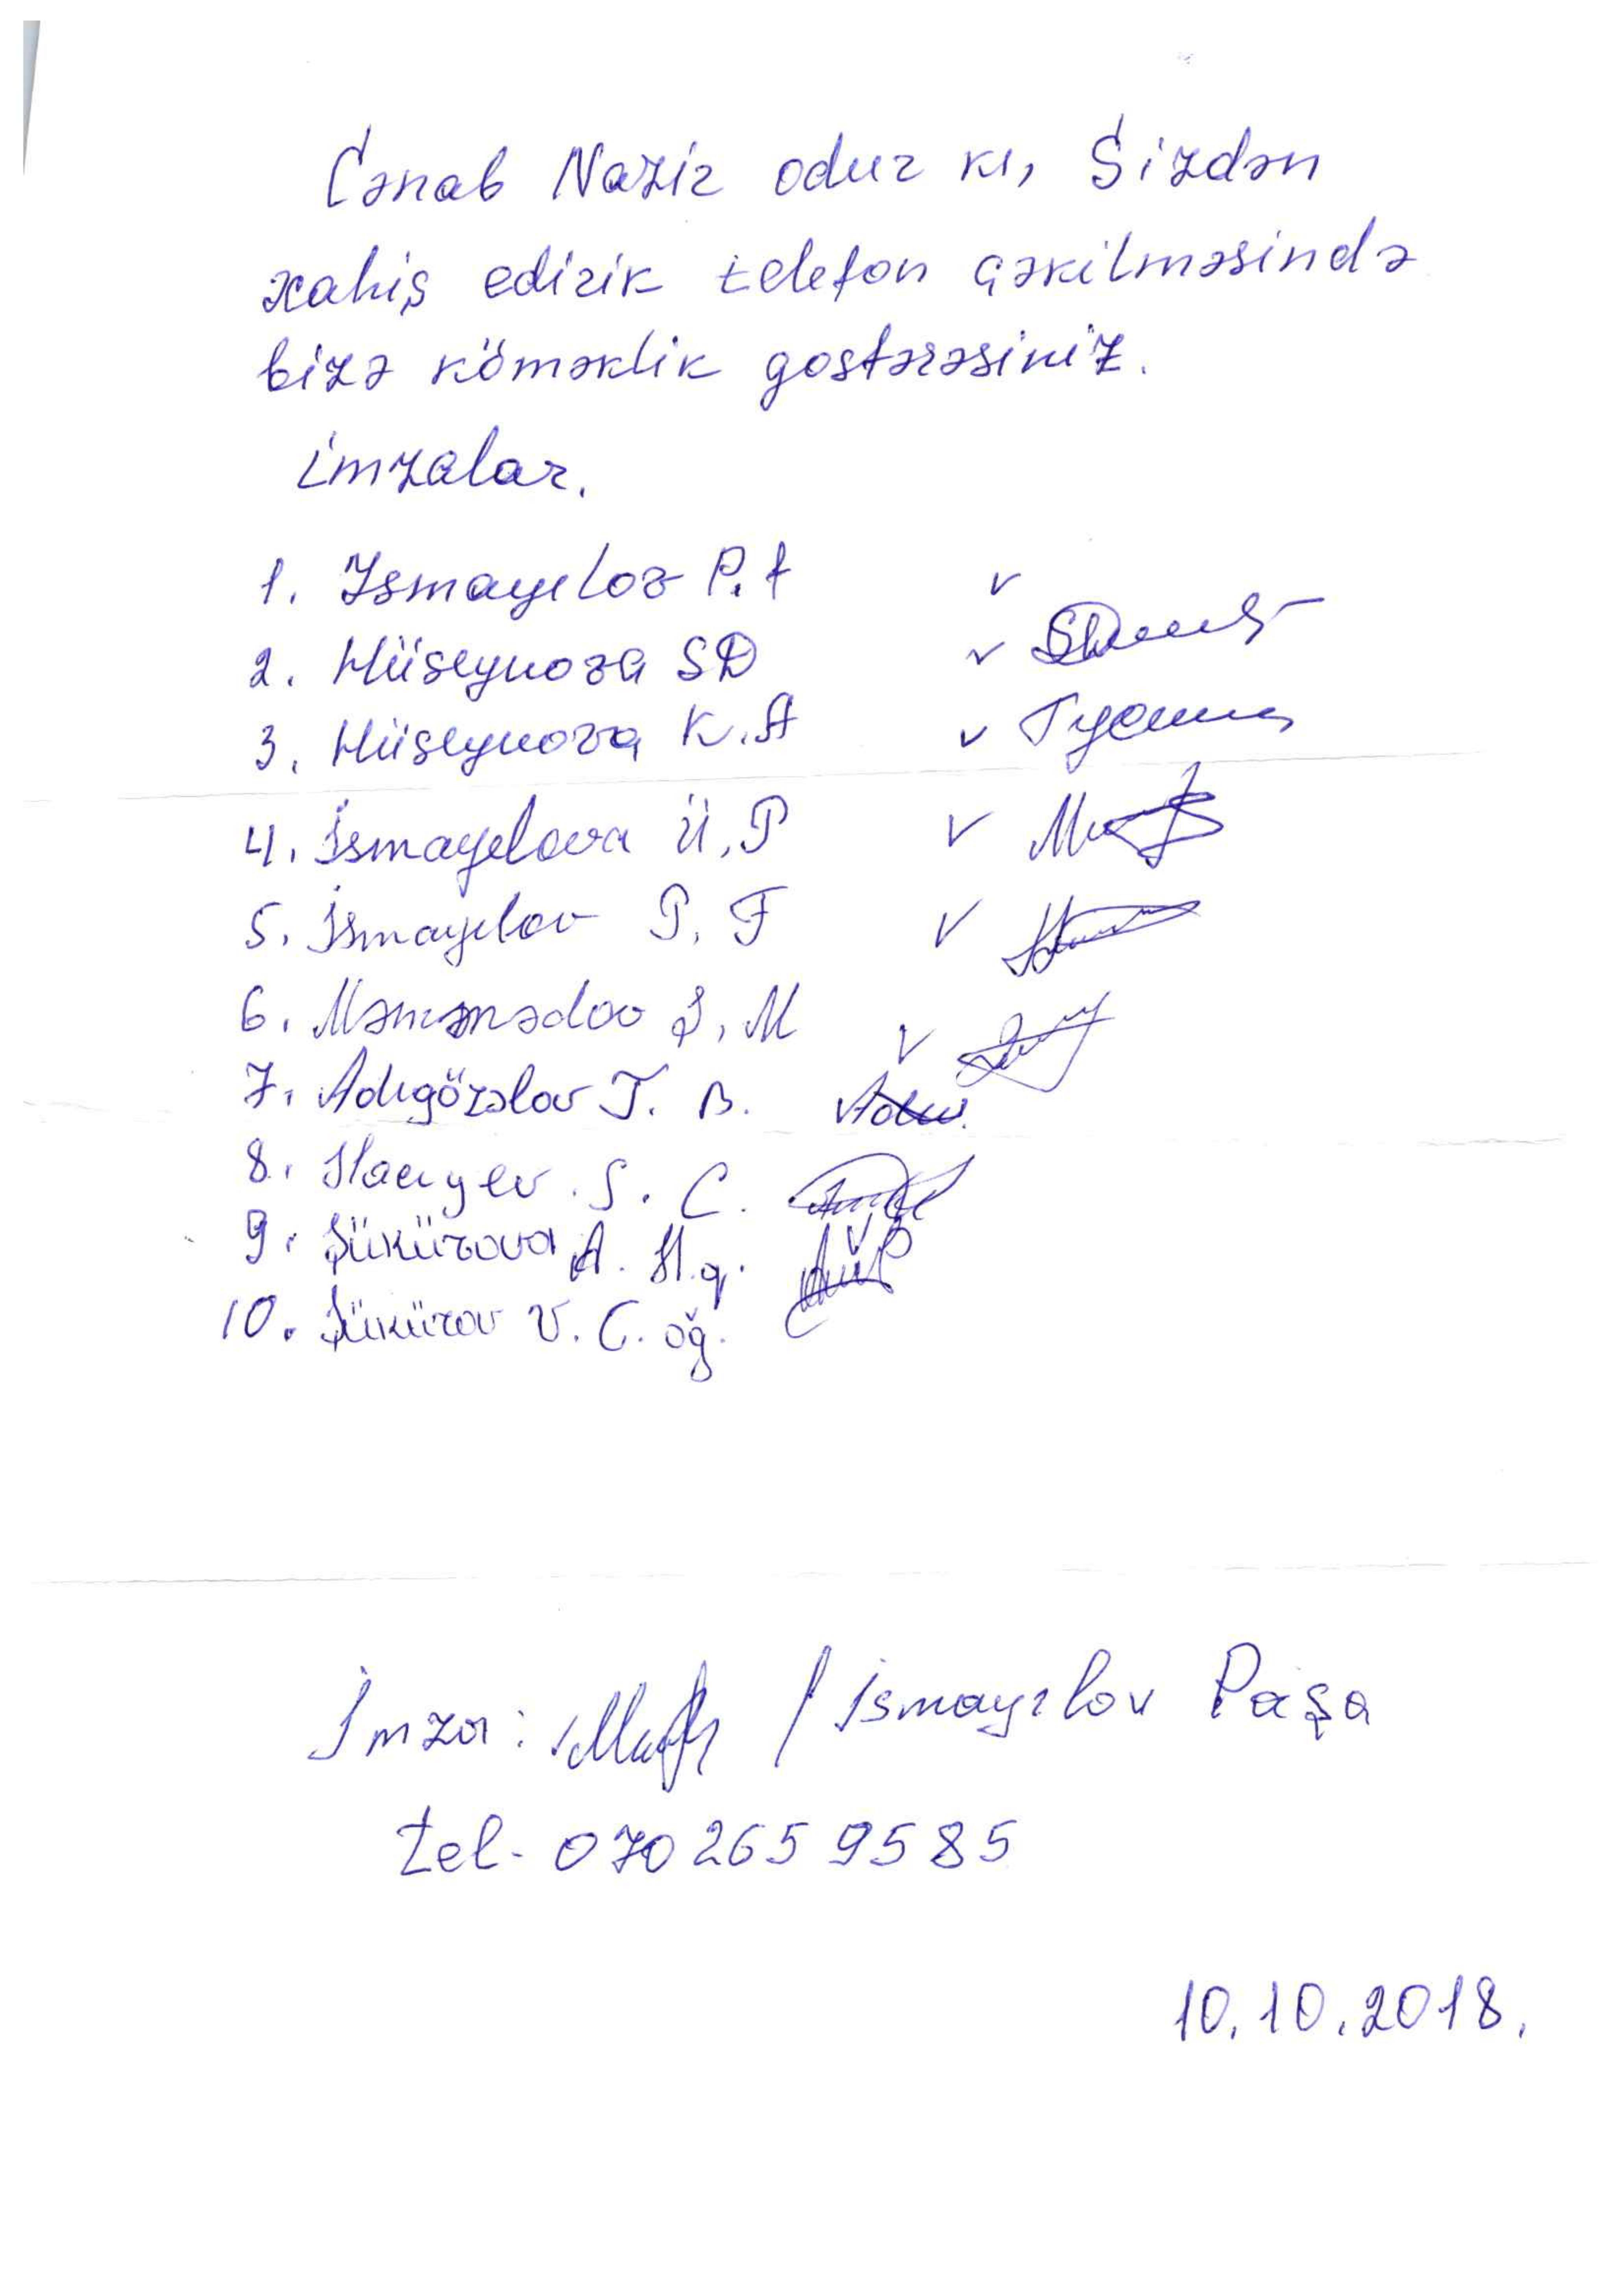 Cənab Nazir odur ki, Sizdən
xahiş edirik telefon çəkilməsində
bizə köməklik gostərəsiniz.
İmzalar.
1. Ismayılov P.f v
2. Hüseynova SD v
3. Hüseynova K.A v
4. İsmayılova Ü.P v
5. İsmayılov P. F v
6. Məmmədov Ş. M v
7. Adıgözəlov T. B.
8. S. C.
9. Şükürova A. H.q.
10. Şükürov V. C. oğ.
İmza: / İsmayılov Paşa
tel- 070 265 95 85
10.10.2018.